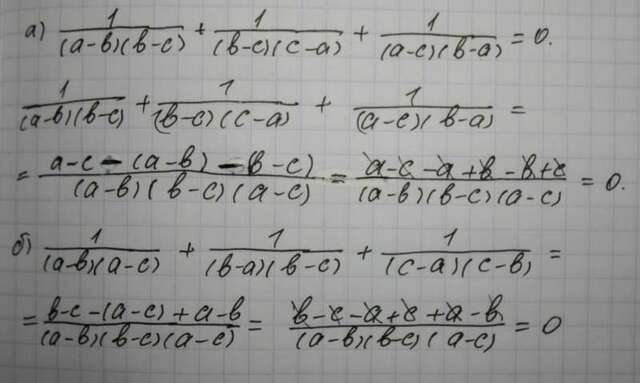 а) 1/((a-b)(b-c)) + 1/((b-c)(c-a)) + 1/((a-c)(b-a)) = 0.
1/((a-b)(b-c)) + 1/((b-c)(c-a)) + 1/((a-c)(b-a)) =
= (a-c-(a-b)-(b-c))/((a-b)(b-c)(a-c)) = (a-c-a+b-b+c)/((a-b)(b-c)(a-c)) = 0.
б) 1/((a-b)(a-c)) + 1/((b-a)(b-c)) + 1/((c-a)(c-b)) =
= (b-c-(a-c)+a-b)/((a-b)(b-c)(a-c)) = (b-c-a+c+a-b)/((a-b)(b-c)(a-c)) = 0